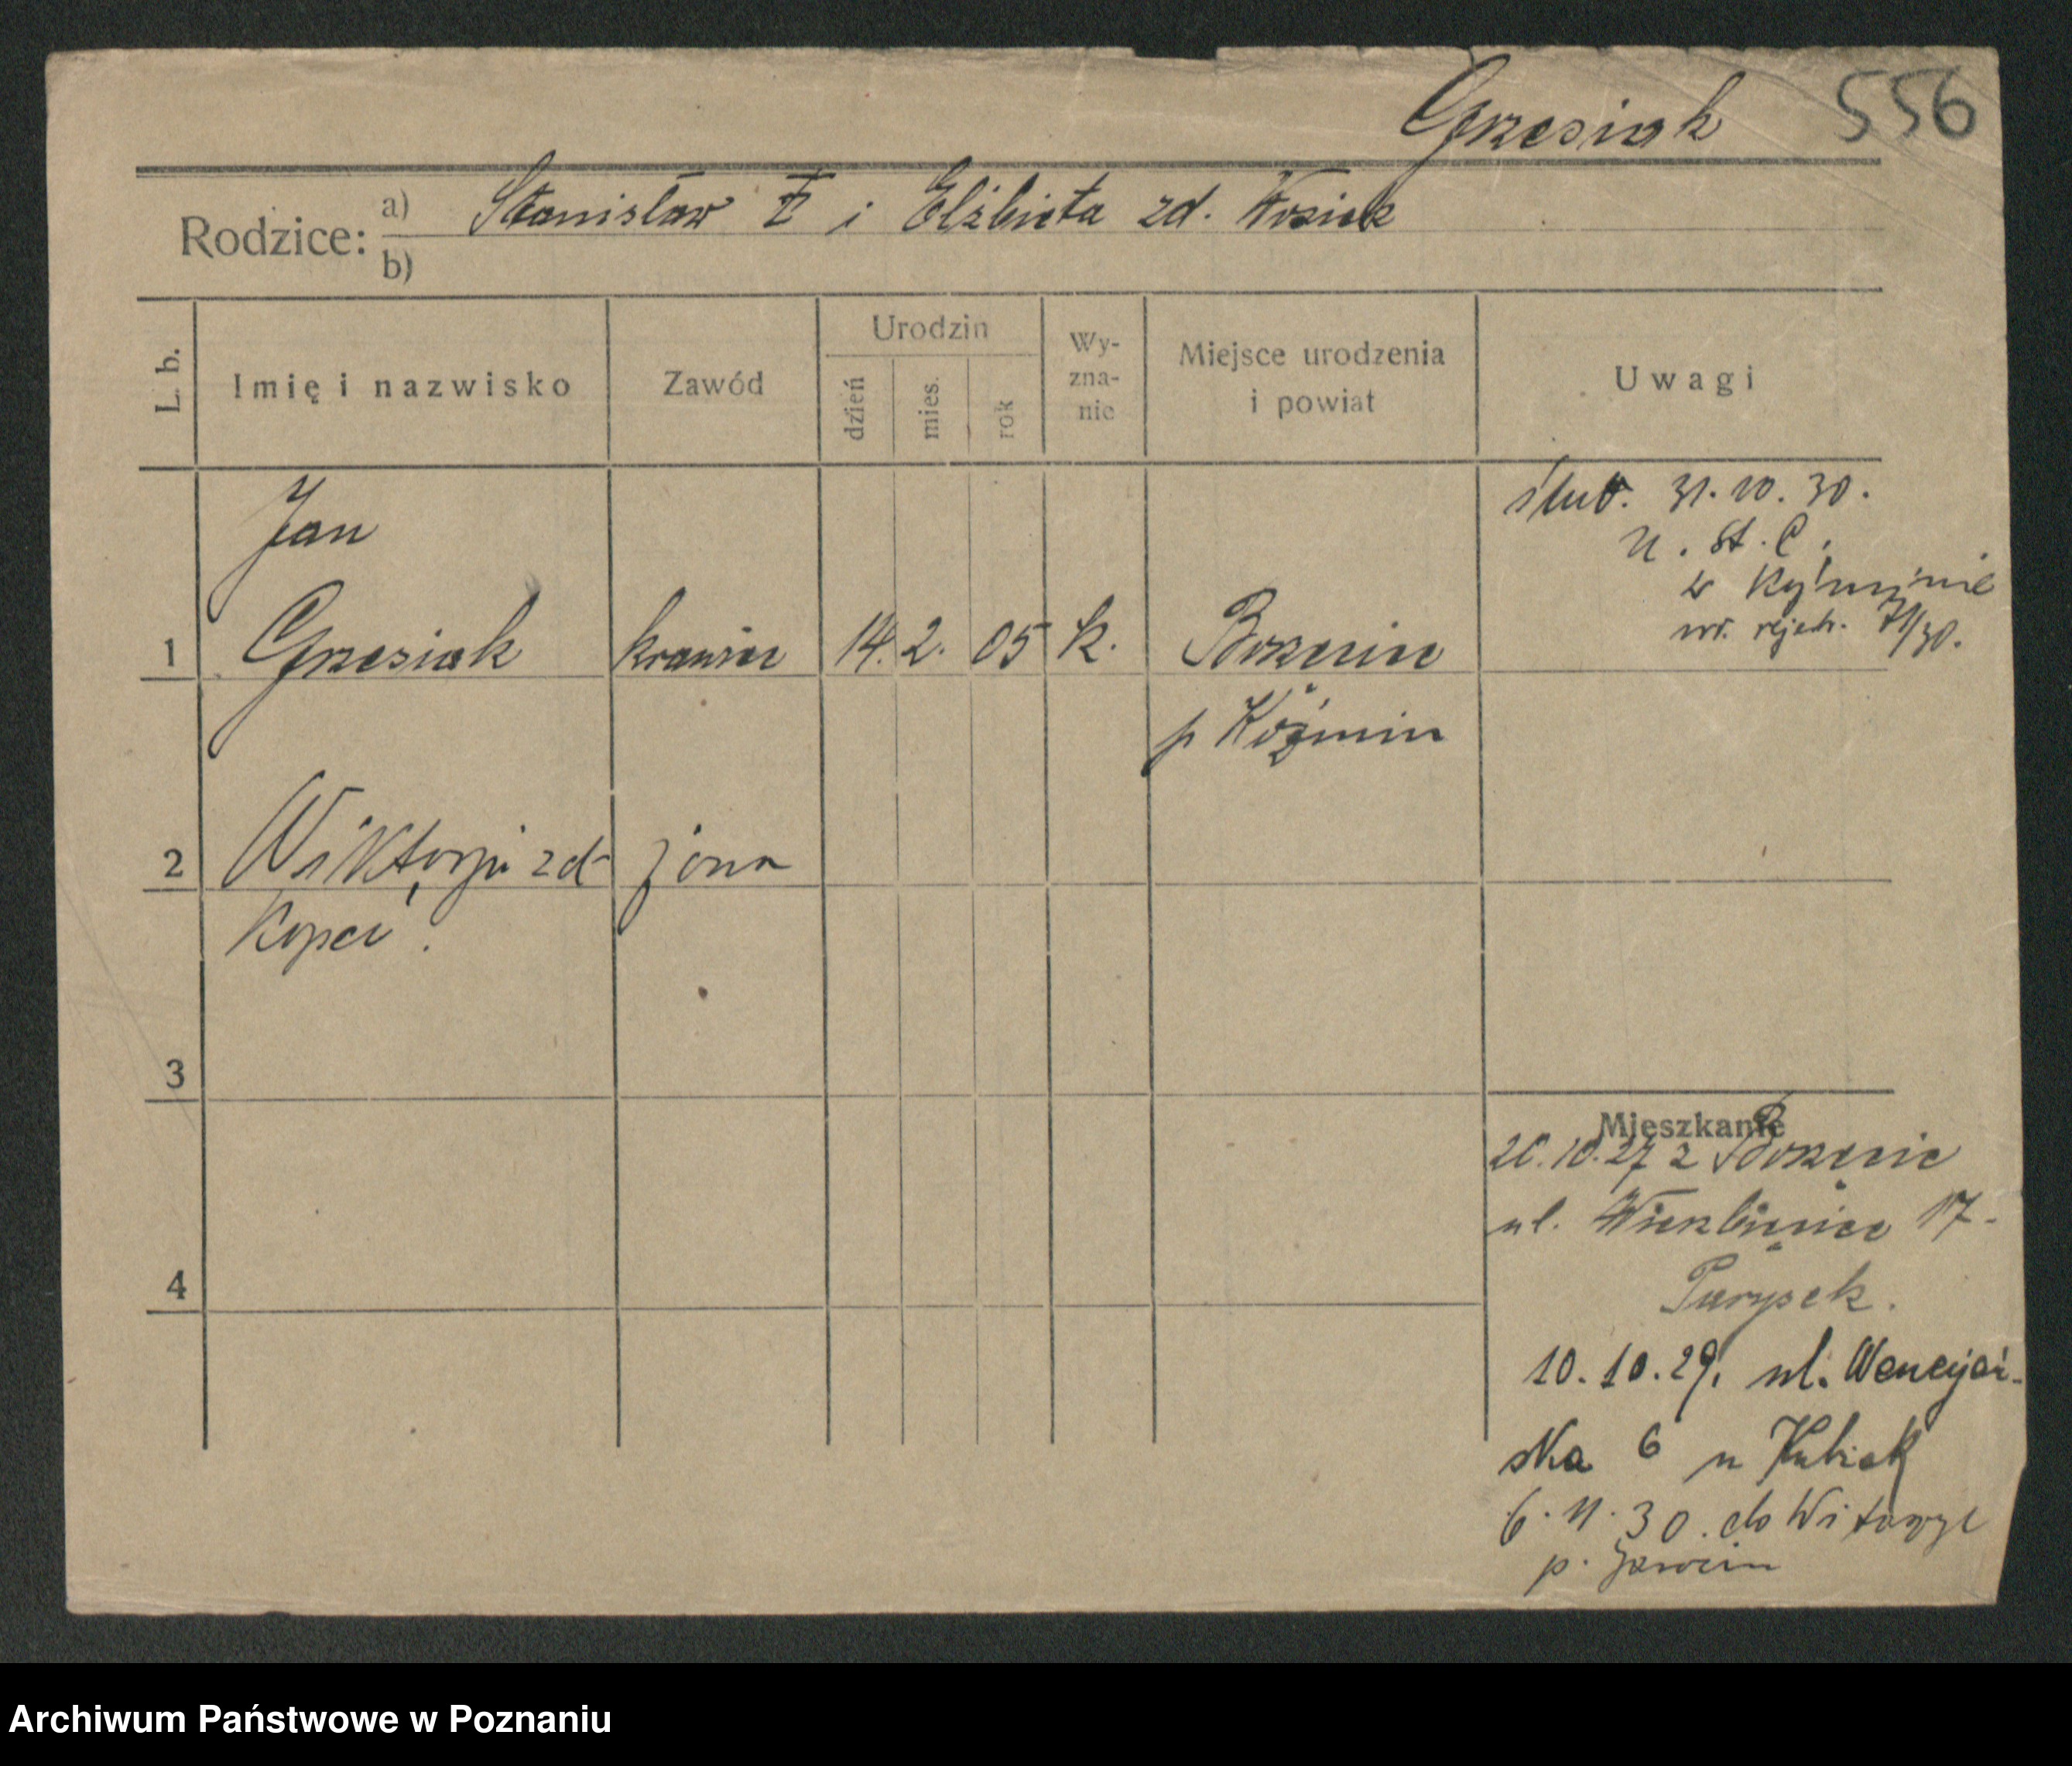 Grzesiak 556
Rodzice: a) Stanisław Ł i Elżbieta zd. Wosiek
b)
L. b.
Imię i nazwisko
Zawód
Urodzin
dzień
mies.
rok
Wy-
zna-
nie
Miejsce urodzenia
i powiat
Uwagi
ślub. 31.10.30.
U. St. C.
w
nr. rejestr. 71/30.
Jan
1 Grzesiak krawiec 14. 2. 05 k. Borzęcice
p Koźmin
2 Wiktorja zd żona
Kopeć.
3
4
Mieszkanie
26.10.27 z Borzęcic
ul. Wierzbięcice 17-
Parysek.
10.10.29. ul. Wenecjań-
ska 6 u Kubiak
6.11.30. do Witaszyc
p. Jarocin
Archiwum Państwowe w Poznaniu